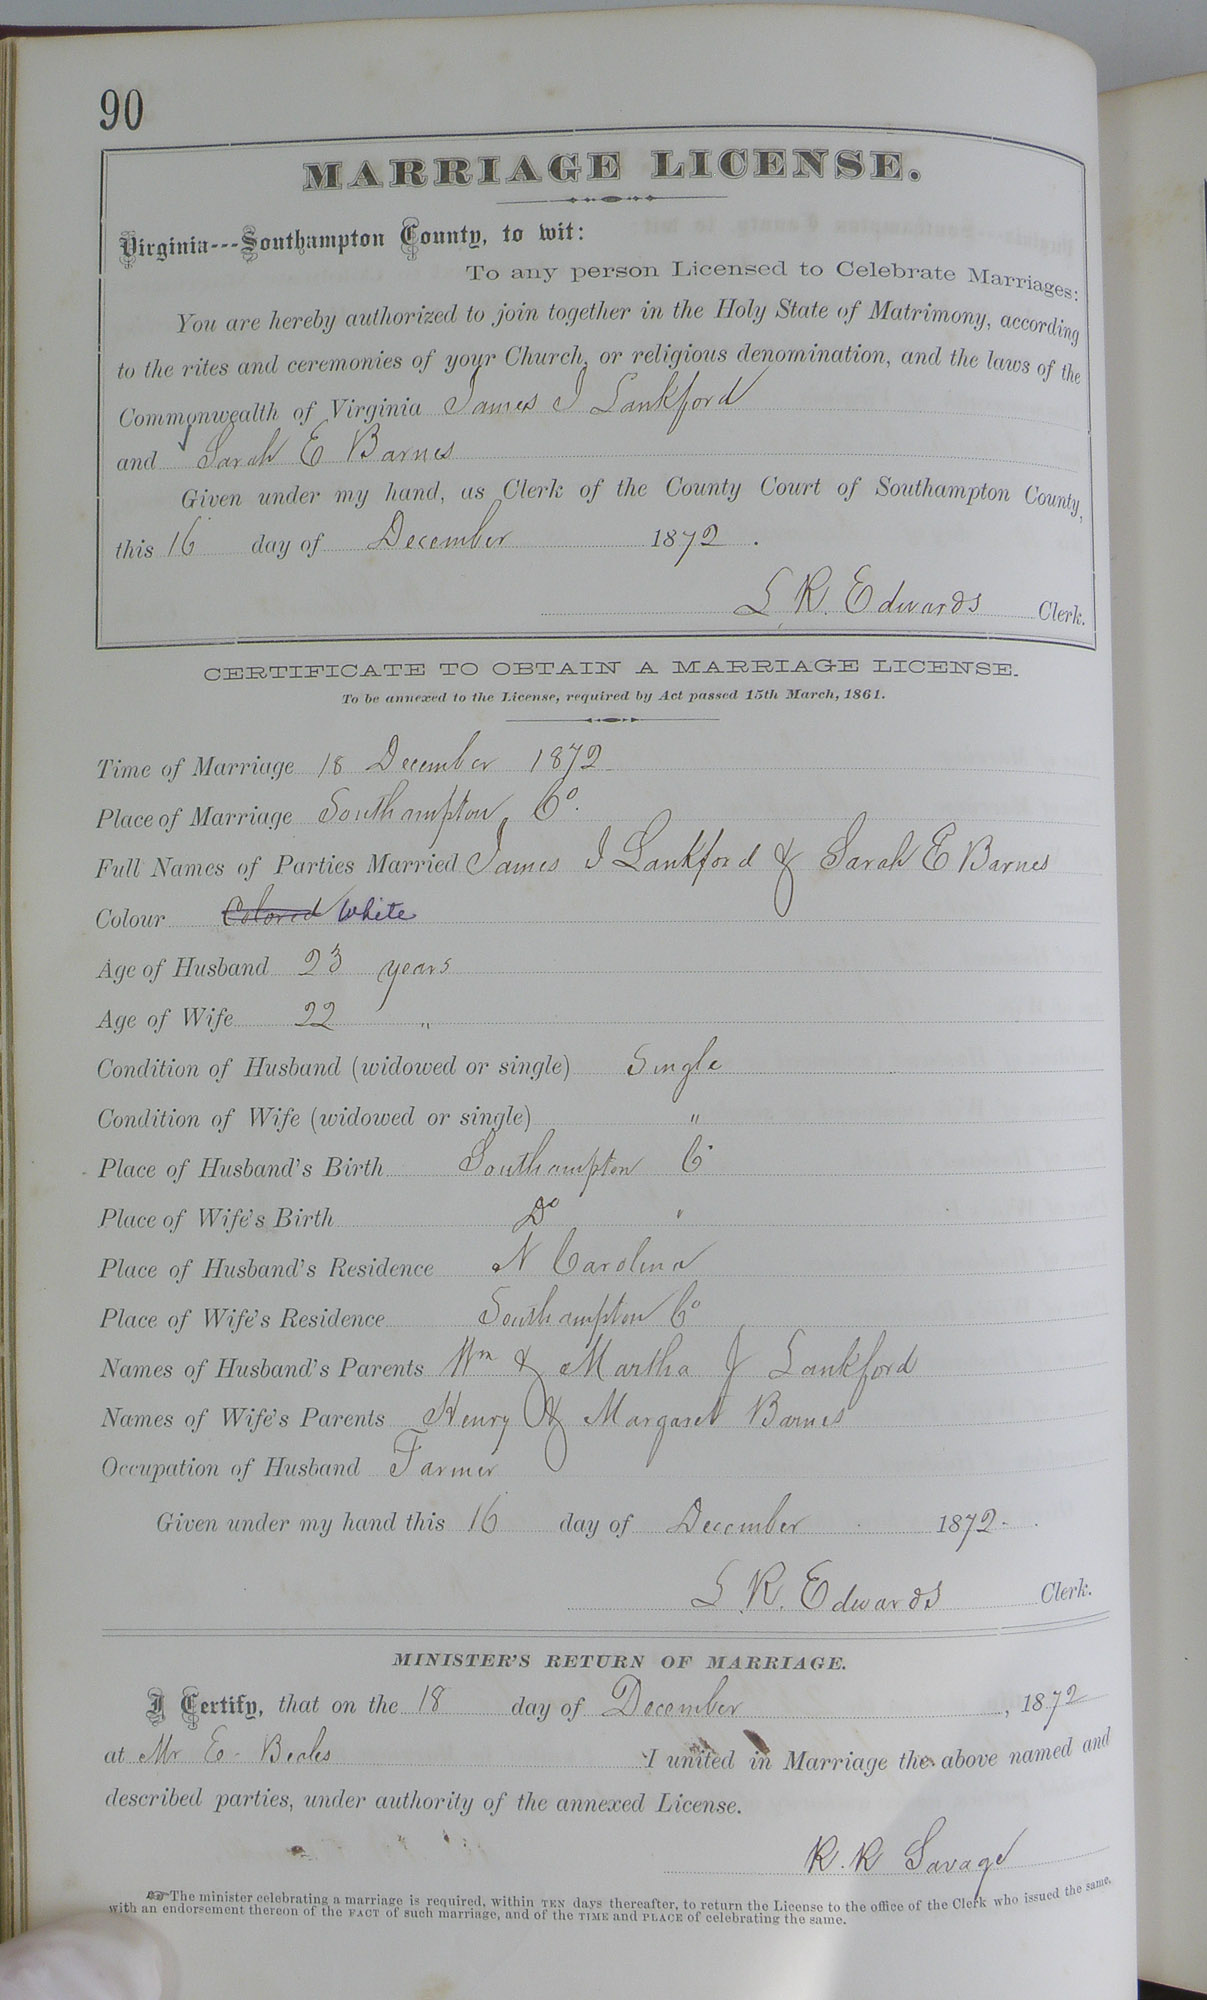 90
MARRIAGE LICENSE.
Virginia---Southampton County, to wit:
To any person Licensed to Celebrate Marriages:
You are hereby authorized to join together in the Holy State of Matrimony, according
to the rites and ceremonies of your Church, or religious denomination, and the laws of the
Commonwealth of Virginia James J Lankford
and Sarah E Barnes
Given under my hand, as Clerk of the County Court of Southampton County,
this 16 day of December 1872.
L. R. Edwards Clerk.
CERTIFICATE TO OBTAIN A MARRIAGE LICENSE.
To be annexed to the License, required by Act passed 15th March, 1861.
Time of Marriage 18 December 1872
Place of Marriage Southampton Co.
Full Names of Parties Married James J Lankford & Sarah E Barnes
Colour Colored White
Age of Husband 23 years
Age of Wife 22 "
Condition of Husband (widowed or single) Single
Condition of Wife (widowed or single) "
Place of Husband's Birth Southampton C
Place of Wife's Birth Do "
Place of Husband's Residence N Carolina
Place of Wife's Residence Southampton Co
Names of Husband's Parents Wm & Martha J Lankford
Names of Wife's Parents Henry & Margaret Barnes
Occupation of Husband Farmer
Given under my hand this 16 day of December 1872.
L. R. Edwards Clerk.
MINISTER'S RETURN OF MARRIAGE.
I Certify, that on the 18 day of December, 1872
at Mr E. I united in Marriage the above named and
described parties, under authority of the annexed License.
R. R Savage
The minister celebrating a marriage is required, within TEN days thereafter, to return the License to the office of the Clerk who issued the same,
with an endorsement thereon of the FACT of such marriage, and of the TIME and PLACE of celebrating the same.